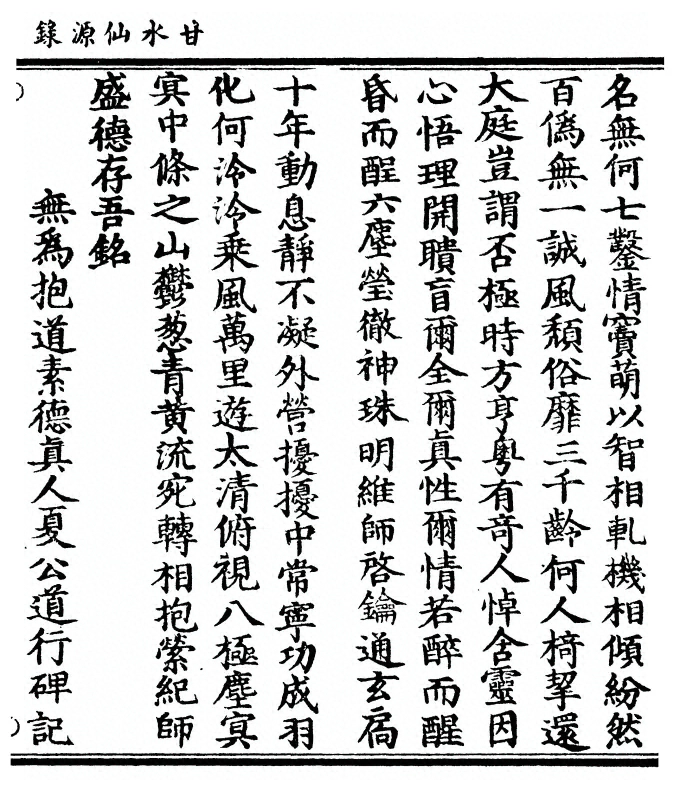 甘水仙源錄
名無何七鑿情竇萌以智相軋機相傾紛然
百僞無一誠風頹俗靡三千齡何人掎挈還
大庭豈謂否極時方亨粵有奇人悼含靈因
心悟理開瞶盲爾全爾眞性爾情若醉而醒
昏而醒六塵瑩徹神珠明維師啓鑰通玄扃
十年動息靜不凝外營擾擾中常寧功成羽
化何泠泠乘風萬里遊太清俯視八極塵冥
冥中條之山鬱葱青黃流宛轉相抱縈紀師
盛德存吾銘
無爲抱道素德眞人夏公道行碑記